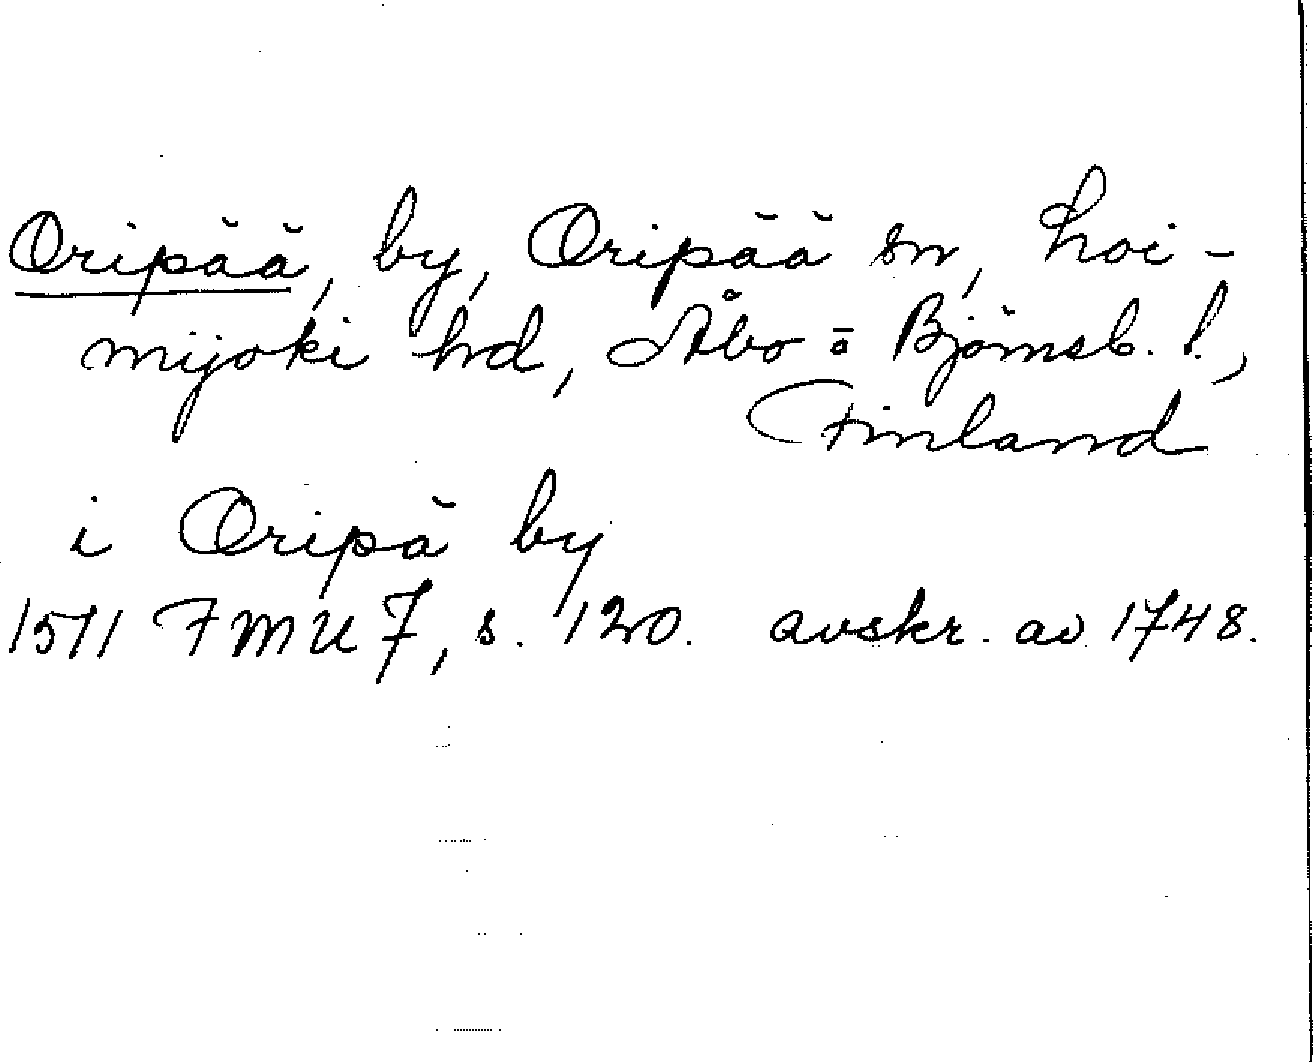 Oripää, by, Oripää sn, Loi-
mijoki hd, Åbo o Björnsb. l.,
Finland
i Oripä by
1511 FMU 7, s. 120. avskr. av 1748.